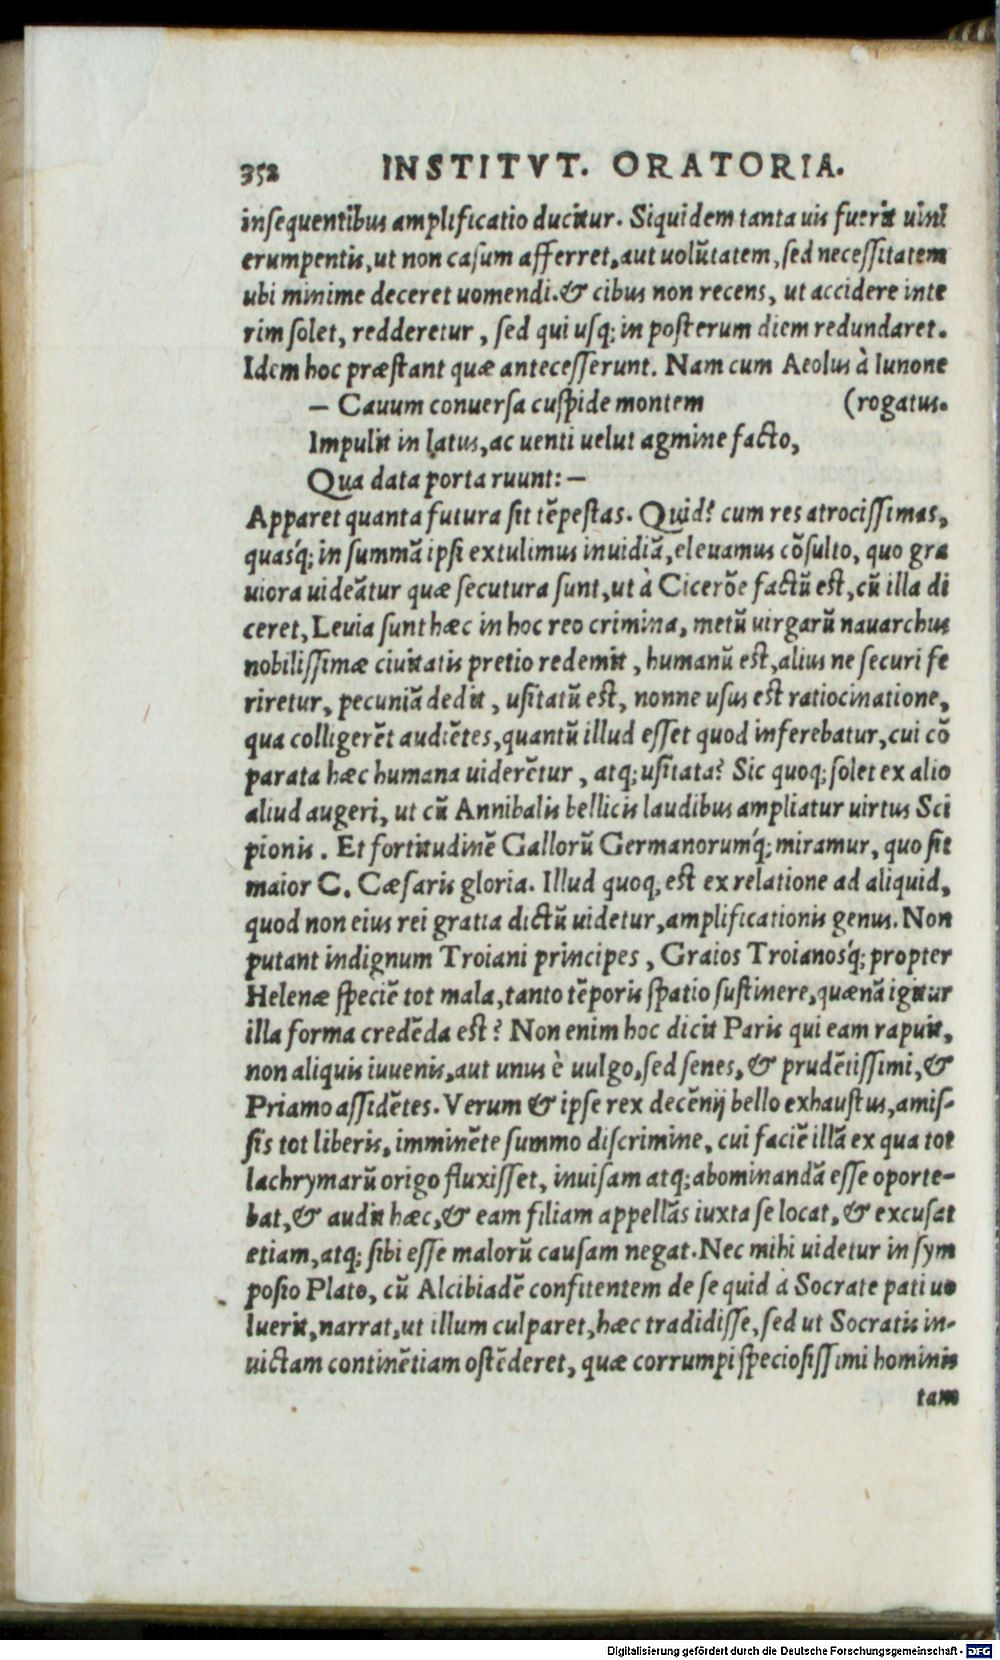 352 INSTITVT. ORATORIA.
inſequentibus amplificatio ducitur. Siquidem tanta uis fuerit uini
erumpentis, ut non caſum afferret, aut uolũtatem, ſed neceſſitatem
ubi minime deceret uomendi. & cibus non recens, ut accidere inte
rim ſolet, redderetur, ſed qui uſq; in poſterum diem redundaret.
Idem hoc præſtant quæ anteceſſerunt. Nam cum Aeolus à Iunone
— Cauum conuerſa cuſpide montem (rogatus.
Impulit in latus, ac uenti uelut agmine facto,
Qua data porta ruunt: —
Apparet quanta futura ſit tẽpeſtas. Quid? cum res atrociſſimas,
quasq́; in ſummã ipſi extulimus inuidiã, eleuamus cõſulto, quo gra
uiora uideãtur quæ ſecutura ſunt, ut à Cicerõe factũ eſt, cũ illa di
ceret, Leuia ſunt hæc in hoc reo crimina, metũ uirgarũ nauarchus
nobiliſſimæ ciuitatis pretio redemit, humanũ eſt, alius ne ſecuri fe
riretur, pecuniã dedit, uſitatũ eſt, nonne uſus eſt ratiocinatione,
qua colligerẽt audiẽtes, quantũ illud eſſet quod inferebatur, cui cõ
parata hæc humana uiderẽtur, atq; uſitata? Sic quoq; ſolet ex alio
aliud augeri, ut cũ Annibalis bellicis laudibus ampliatur uirtus Sci
pionis. Et fortitudinẽ Gallorũ Germanorumq́; miramur, quo ſit
maior C. Cæſaris gloria. Illud quoq; eſt ex relatione ad aliquid,
quod non eius rei gratia dictũ uidetur, amplificationis genus. Non
putant indignum Troiani principes, Graios Troianosq́; propter
Helenæ ſpeciẽ tot mala, tanto tẽporis ſpatio ſuſtinere, quænã igitur
illa forma credẽda eſt? Non enim hoc dicit Paris qui eam rapuit,
non aliquis iuuenis, aut unus è uulgo, ſed ſenes, & prudẽtiſſimi, &
Priamo aſſidẽtes. Verum & ipſe rex decẽnij bello exhauſtus, amiſ-
ſis tot liberis, imminẽte ſummo diſcrimine, cui faciẽ illã ex qua tot
lachrymarũ origo fluxiſſet, inuiſam atq; abominandã eſſe oporte-
bat, & audit hæc, & eam filiam appellãs iuxta ſe locat, & excuſat
etiam, atq; ſibi eſſe malorũ cauſam negat. Nec mihi uidetur in ſym
poſio Plato, cũ Alcibiadẽ confitentem de ſe quid à Socrate pati uo
luerit, narrat, ut illum culparet, hæc tradidiſſe, ſed ut Socratis in-
uictam continẽtiam oſtẽderet, quæ corrumpi ſpecioſiſſimi hominis
tam
Digitalisierung gefördert durch die Deutsche Forschungsgemeinschaft - DFG